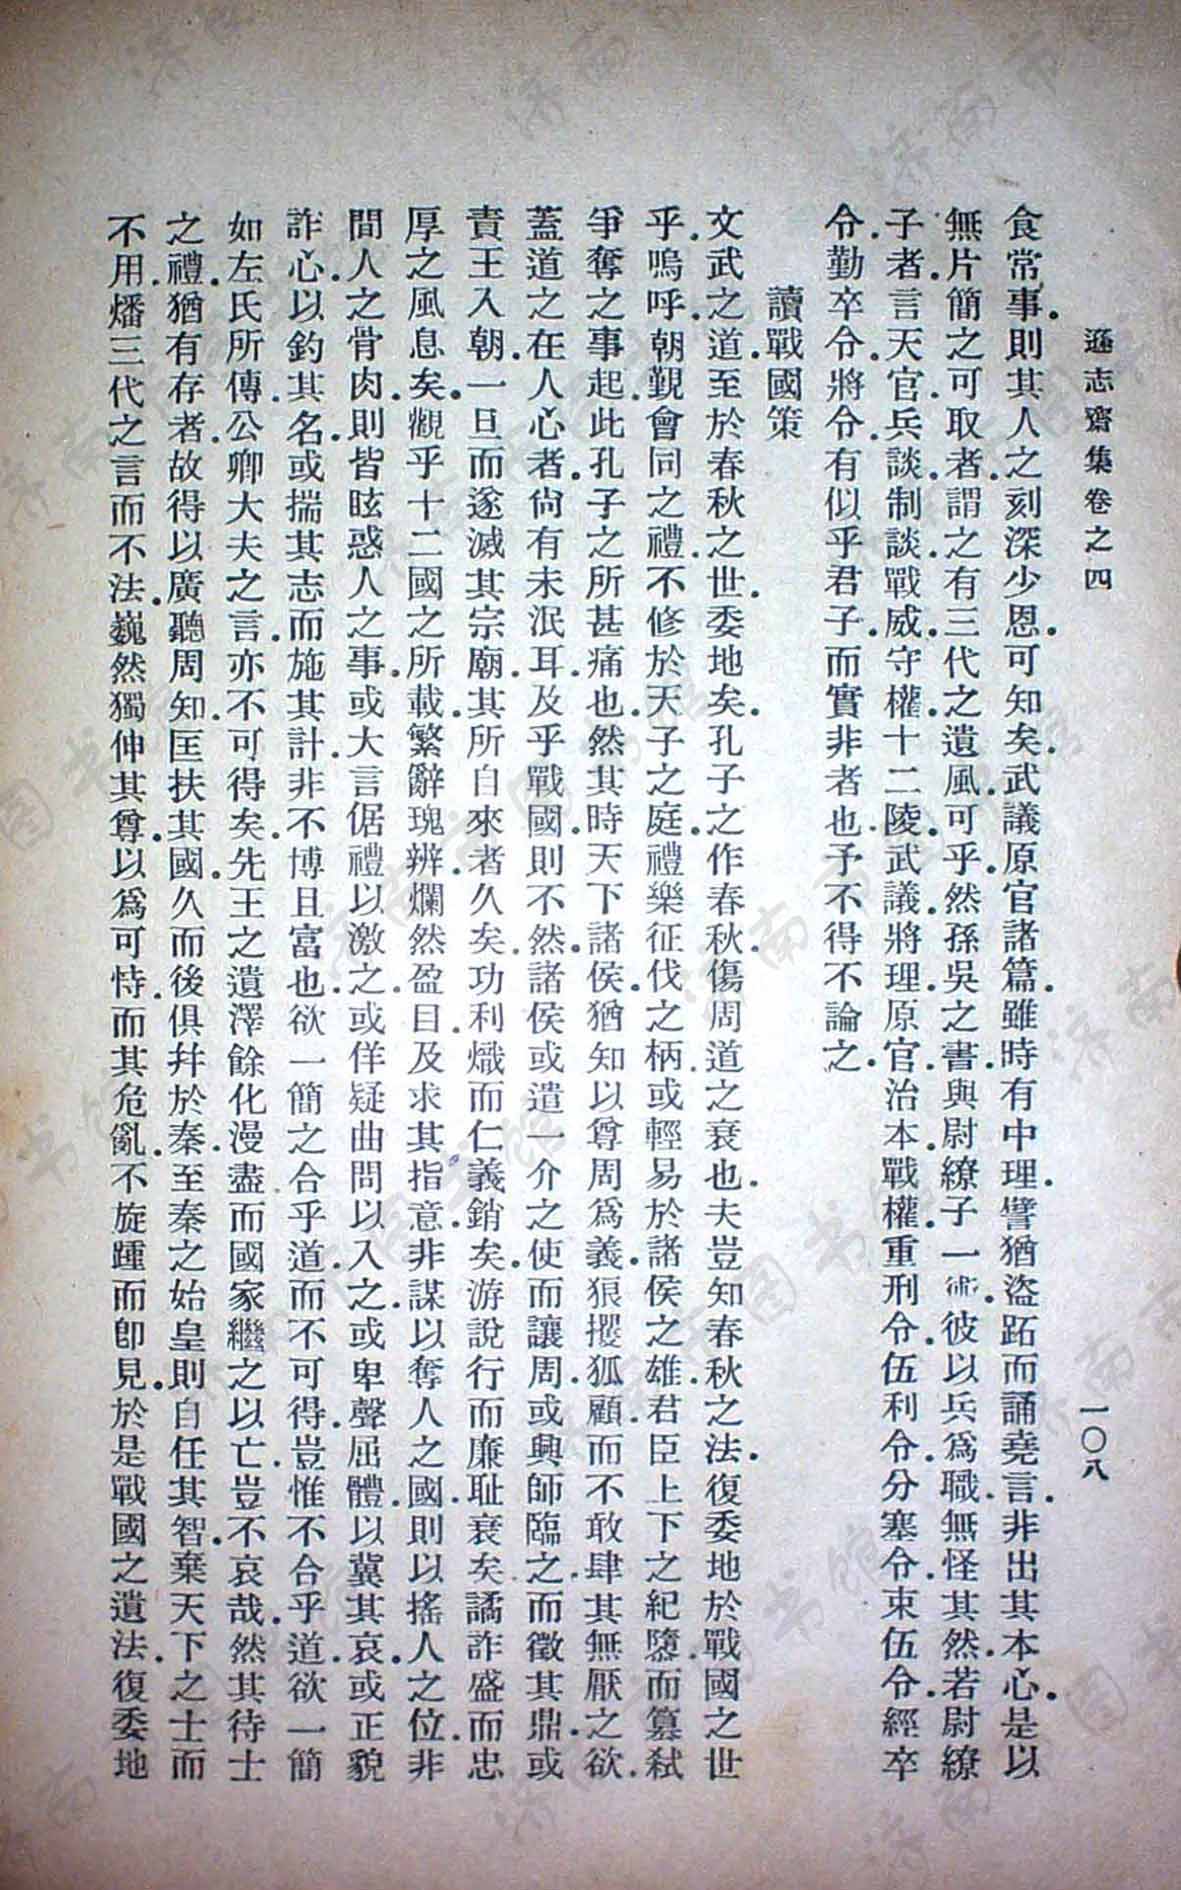 遜志齋集卷之四
一〇八
食常事則其人之刻深少恩可知矣武議原官諸篇雖時有中理譬猶盜跖而誦堯言非出其本心是以
無片簡之可取者謂之有三代之遺風可乎然孫吳之書與尉繚子一術彼以兵爲職無怪其然若尉繚
子者言天官兵談制談戰威守權十二陵武議將理原官治本戰權重刑令伍利令分塞令束伍令經卒
令勤卒令將令有似乎君子而實非者也予不得不論之
讀戰國策
文武之道至於春秋之世委地矣孔子之作春秋傷周道之衰也夫豈知春秋之法復委地於戰國之世
乎嗚呼朝覲會同之禮不修於天子之庭禮樂征伐之柄或輕易於諸侯之雄君臣上下之紀隳而篡弒
爭奪之事起此孔子之所甚痛也然其時天下諸侯猶知以尊周爲義狼攫狐顧而不敢肆其無厭之欲
蓋道之在人心者尙有未泯耳及乎戰國則不然諸侯或遣一介之使而讓周或興師臨之而徵其鼎或
責王入朝一旦而遂滅其宗廟其所自來者久矣功利熾而仁義銷矣游說行而廉恥衰矣譎詐盛而忠
厚之風息矣觀乎十二國之所載繁辭瑰辨爛然盈目及求其指意非謀以奪人之國則以搖人之位非
間人之骨肉則皆眩惑人之事或大言倨禮以激之或佯疑曲問以入之或卑聲屈體以冀其哀或正貌
詐心以釣其名或揣其志而施其計非不博且富也欲一簡之合乎道而不可得豈惟不合乎道欲一簡
如左氏所傳公卿大夫之言亦不可得矣先王之遺澤餘化漫盡而國家繼之以亡豈不哀哉然其待士
之禮猶有存者故得以廣聽周知匡扶其國久而後俱幷於秦至秦之始皇則自任其智棄天下之士而
不用燔三代之言而不法巍然獨伸其尊以爲可恃而其危亂不旋踵而卽見於是戰國之遺法復委地